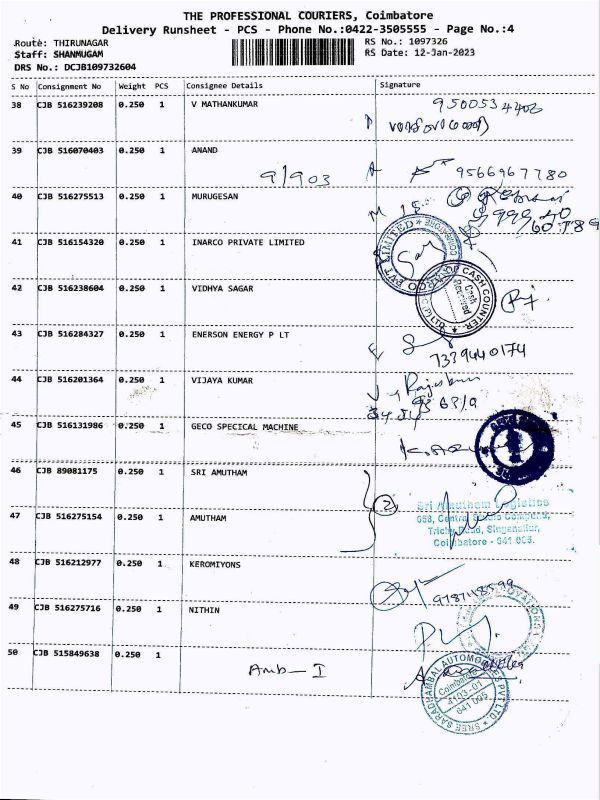 THE PROFESSIONAL COURIERS, Coimbatore
Delivery Runsheet - PCS - Phone No.:0422-3505555 - Page No.:4
Route: THIRUNAGAR
RS No.: 1097326
Staff: SHANMUGAM
RS Date: 12-Jan-2023
DRS No.: DCJB109732604
S No Consignment No Weight PCS Consignee Details Signature
38 CJB 516239208 0.250 1 V MATHANKUMAR
39 CJB 516070403 0.250 1 ANAND
9/903 9566967780
40 CJB 516275513 0.250 1 MURUGESAN
41 CJB 516154320 0.250 1 INARCO PRIVATE LIMITED
PVT LIMITED * COIMBATORE
42 CJB 516238604 0.250 1 VIDHYA SAGAR
CASH COUNTER
Cash Received
43 CJB 516284327 0.250 1 ENERSON ENERGY P LT
7339440174
44 CJB 516201364 0.250 1 VIJAYA KUMAR
45 CJB 516131986 0.250 1 GECO SPECICAL MACHINE
46 CJB 89081175 0.250 1 SRI AMUTHAM
2
Sri Amutham Logistics
658, Central Studio Compound,
47 CJB 516275154 0.250 1 AMUTHAM
Trichy Road, Singanallur,
Coimbatore - 641 005.
48 CJB 516212977 0.250 1 KEROMIYONS
49 CJB 516275716 0.250 1 NITHIN
50 CJB 515849638 0.250 1
Amb-I
SREE SARADHAMBAL AUTOMOBILES PVT LTD.
Coimbatore
4103-01
641 005